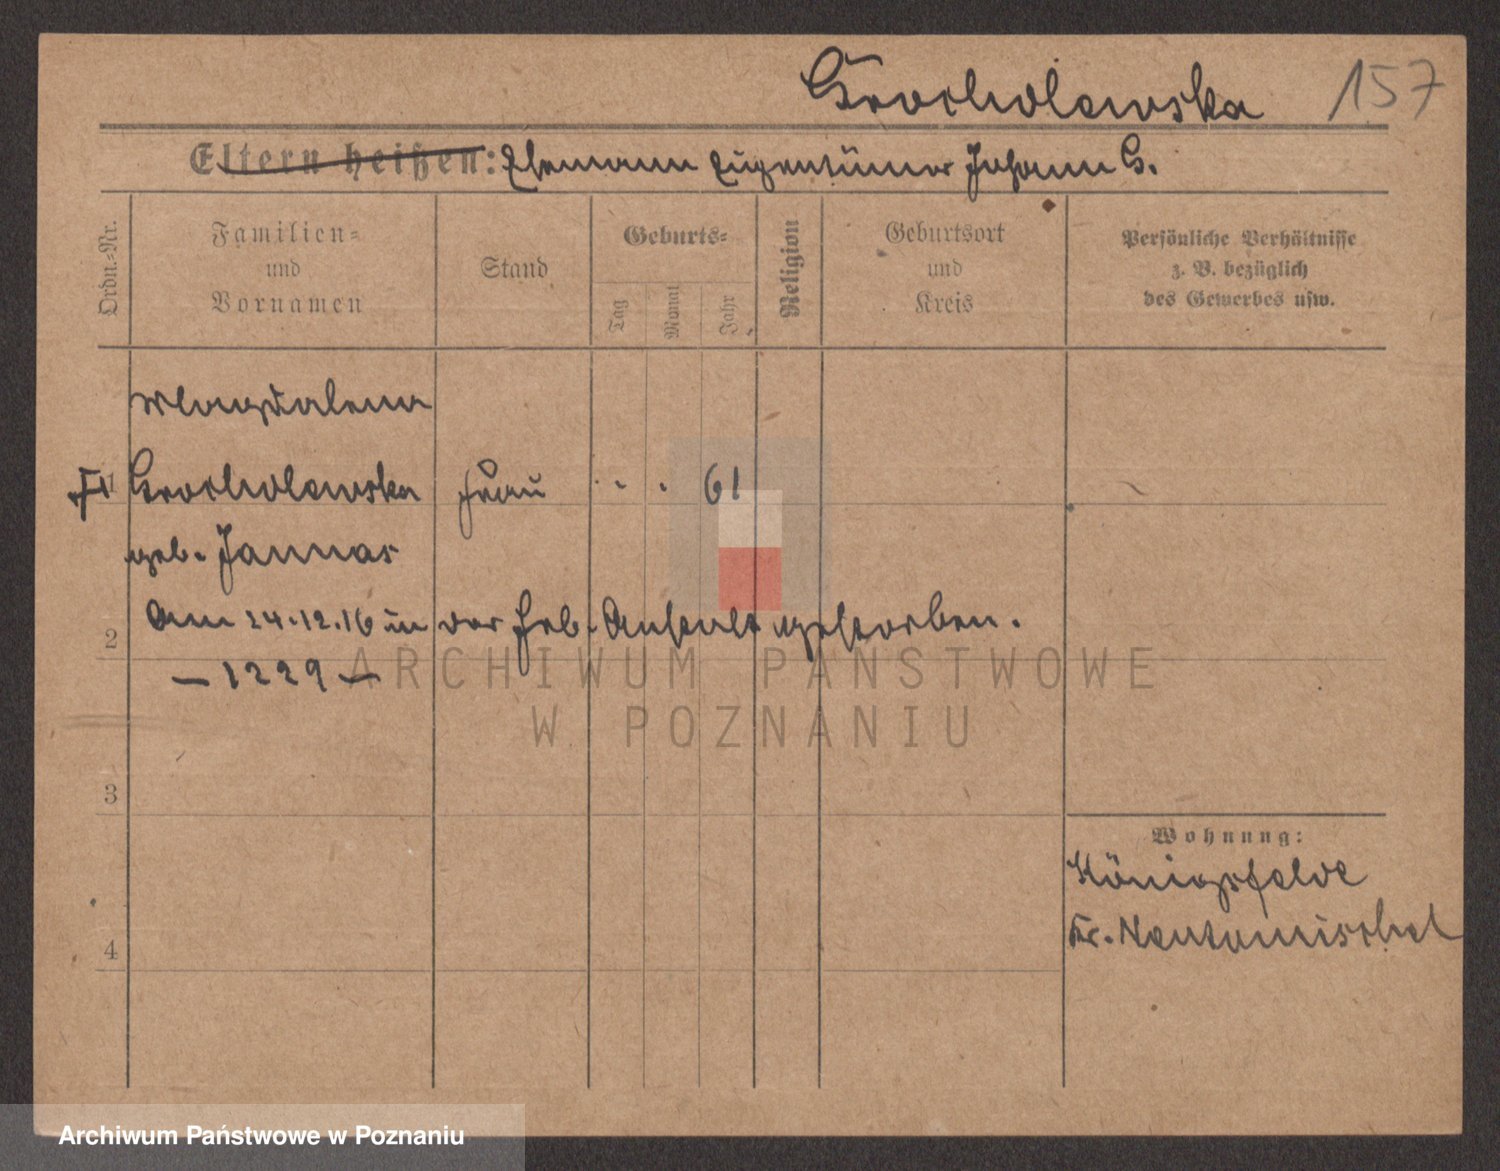 Grocholewska 157
Eltern heißen: Ehemann Eigentümer Johann G.
Ordn.-Nr.
Familien-
und
Vornamen
Stand
Geburts-
Tag
Monat
Jahr
Religion
Geburtsort
und
Kreis
Persönliche Verhältnisse
z. B. bezüglich
des Gewerbes usw.
Magdalena
1 Grocholewska Frau - . 61
geb. Jannas
2 Am 24.12.16 in der Heb. Anstalt gestorben.
- 1229 -
ARCHIWUM PAŃSTWOWE
W POZNANIU
3
Wohnung:
Königsfelde
4 Kr. Neutomischel
Archiwum Państwowe w Poznaniu